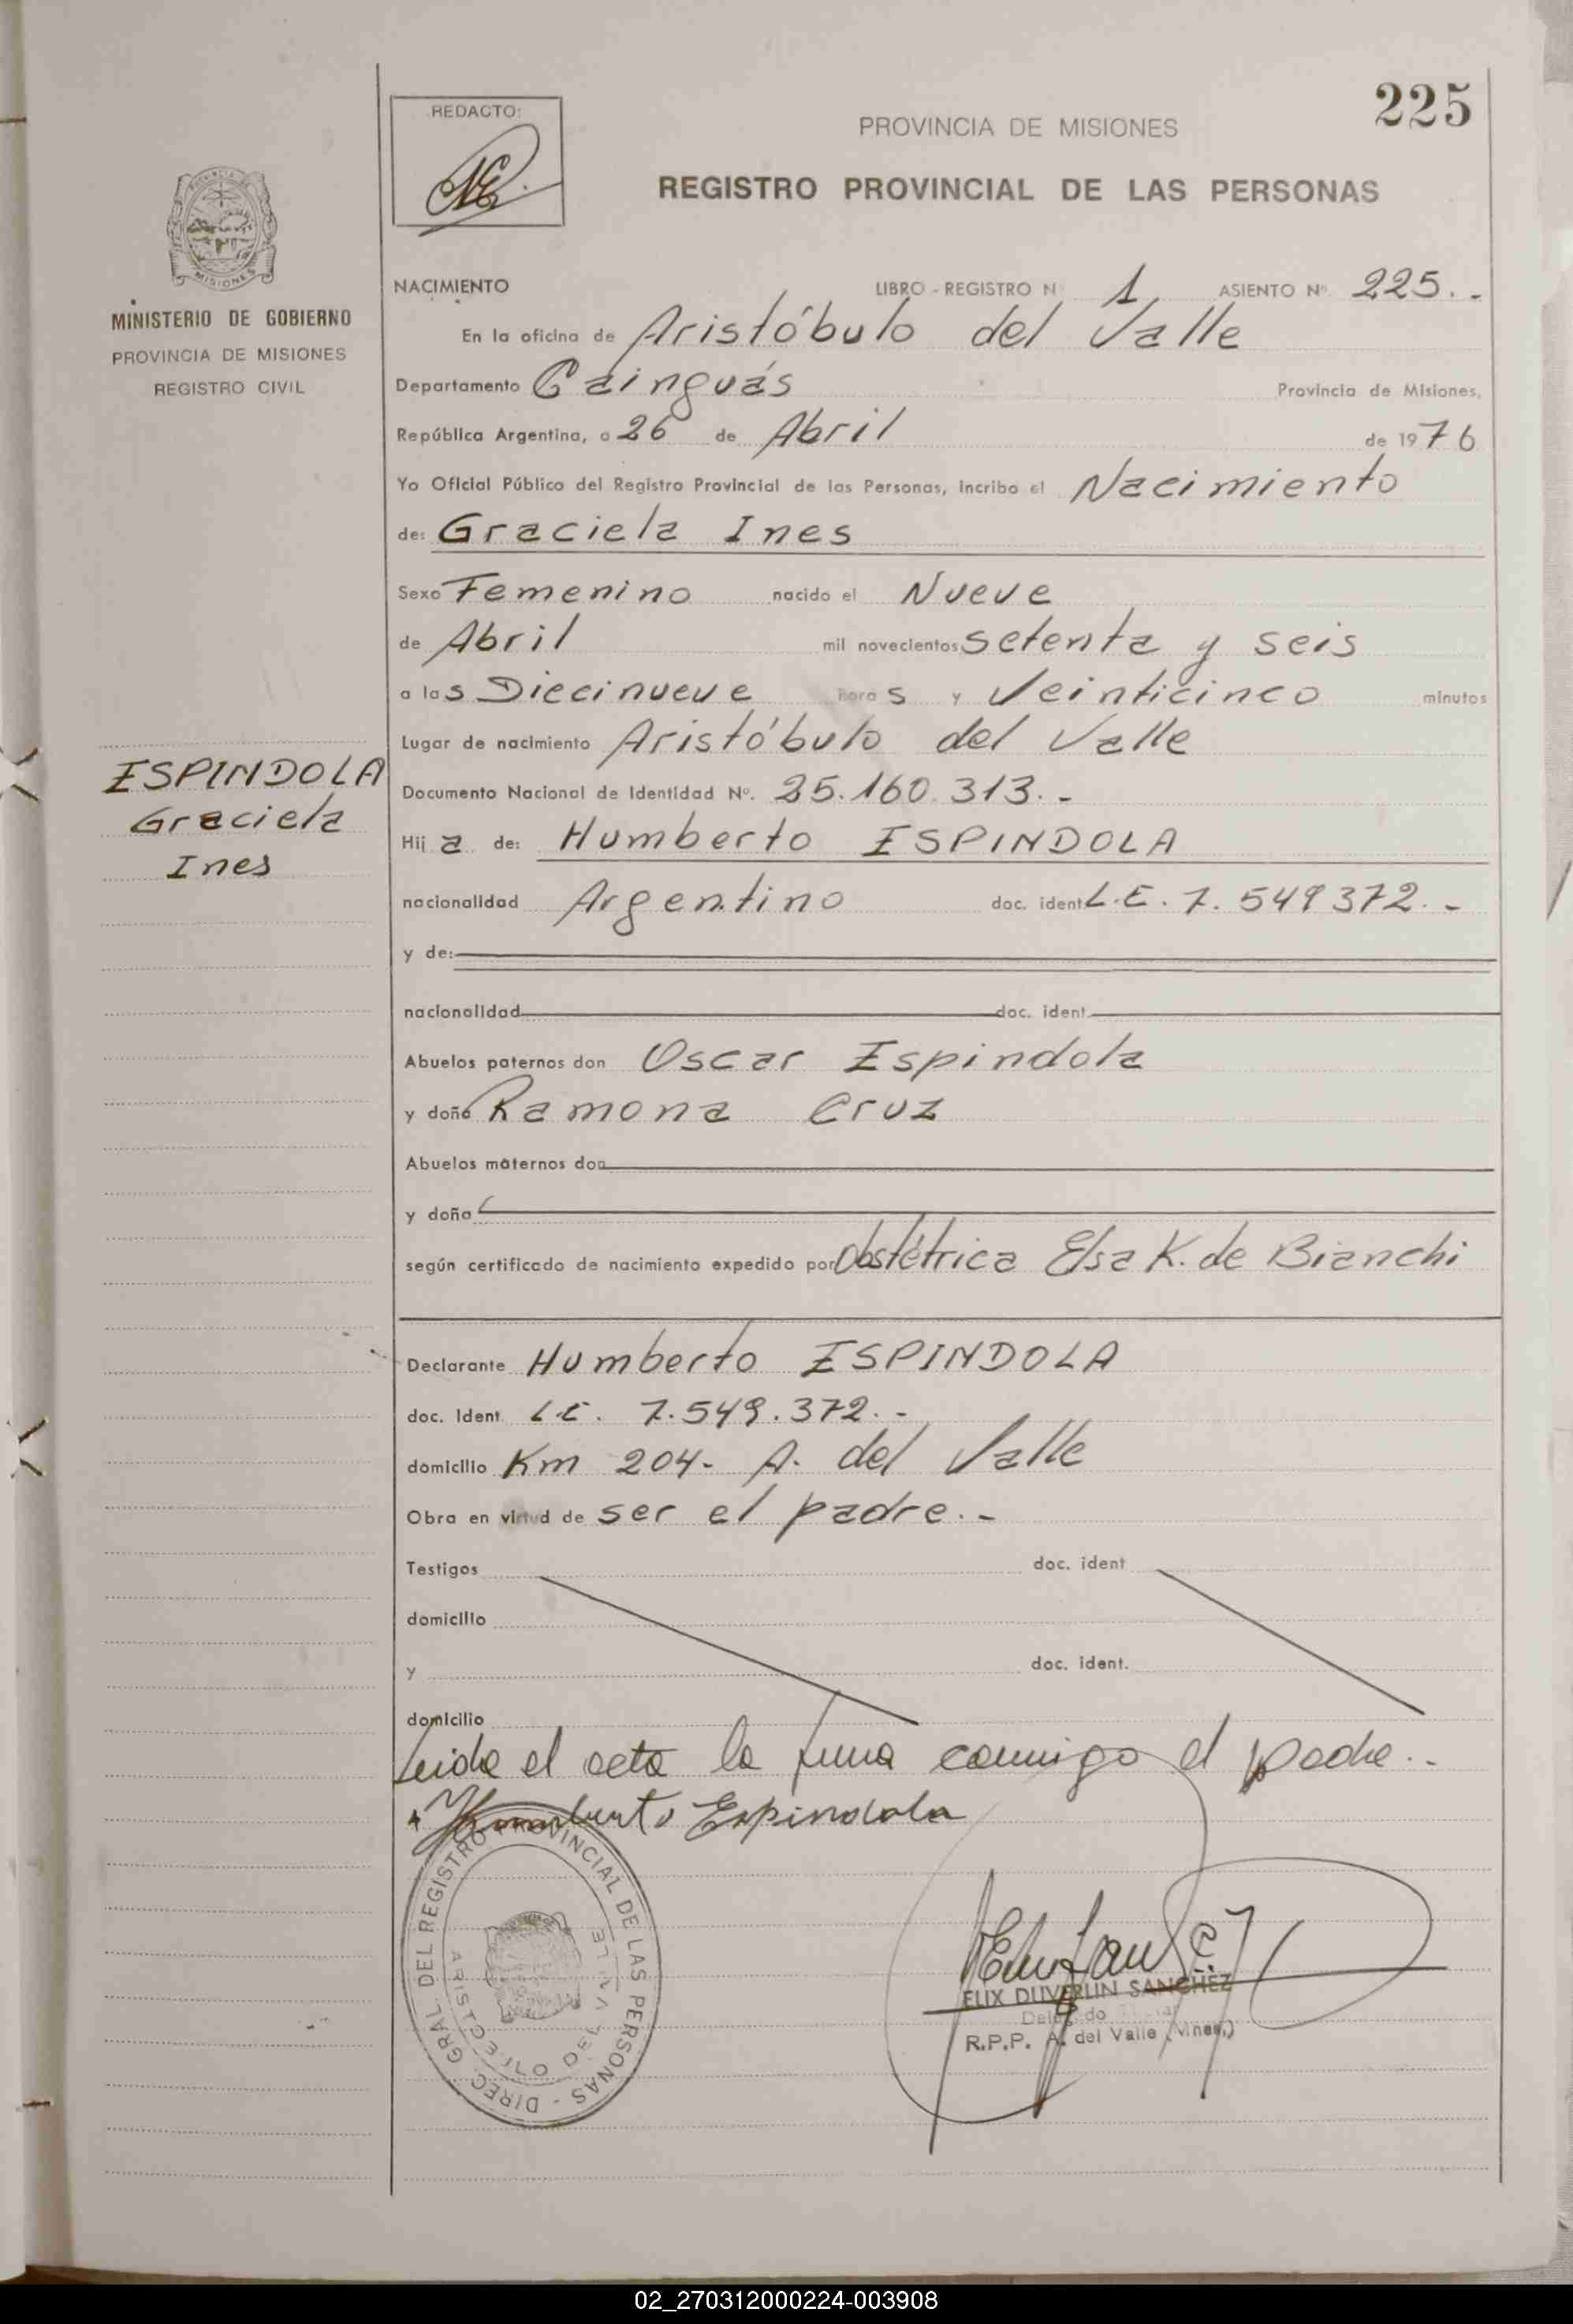 225
REDACTO:
PROVINCIA DE MISIONES
REGISTRO PROVINCIAL DE LAS PERSONAS
MISIONES
MINISTERIO DE GOBIERNO
PROVINCIA DE MISIONES
REGISTRO CIVIL
NACIMIENTO LIBRO - REGISTRO N 1 ASIENTO Nº 225.-
En la oficina de Aristóbulo del Valle
Departamento Cainguás Provincia de Misiones,
República Argentina, a 26 de Abril de 1976
Yo Oficial Público del Registro Provincial de las Personas, incribo el Nacimiento
de: Graciela Ines
Sexo Femenino nacido el Nueve
de Abril mil novecientos setenta y seis
a las Diecinueve horas y Veinticinco minutos
Lugar de nacimiento Aristóbulo del Valle
ESPINDOLA
Graciela
Ines
Documento Nacional de Identidad Nº. 25.160.313.-
Hija de: Humberto ESPINDOLA
nacionalidad Argentino doc. ident L.E. 7.549372.-
y de:
nacionalidad doc. ident.
Abuelos paternos don Oscar Espindola
y doña Ramona Cruz
Abuelos maternos don
y doña
según certificado de nacimiento expedido por Obstétrica Elsa K. de Bianchi
Declarante Humberto ESPINDOLA
doc. Ident. L.E. 7.549.372.-
domicilio Km 204- A. del Valle
Obra en virtud de ser el padre.-
Testigos doc. ident
domicilio
y doc. ident.
domicilio
Leida el acta la firma conmigo el padre.-
Humberto Espindola
DIREC. GRAL DEL REGISTRO PROVINCIAL DE LAS PERSONAS -
DEL VALLE
ELIX DUVERLIN SANCHEZ
R.P.P. A. del Valle (Mnes.)
02_270312000224-003908